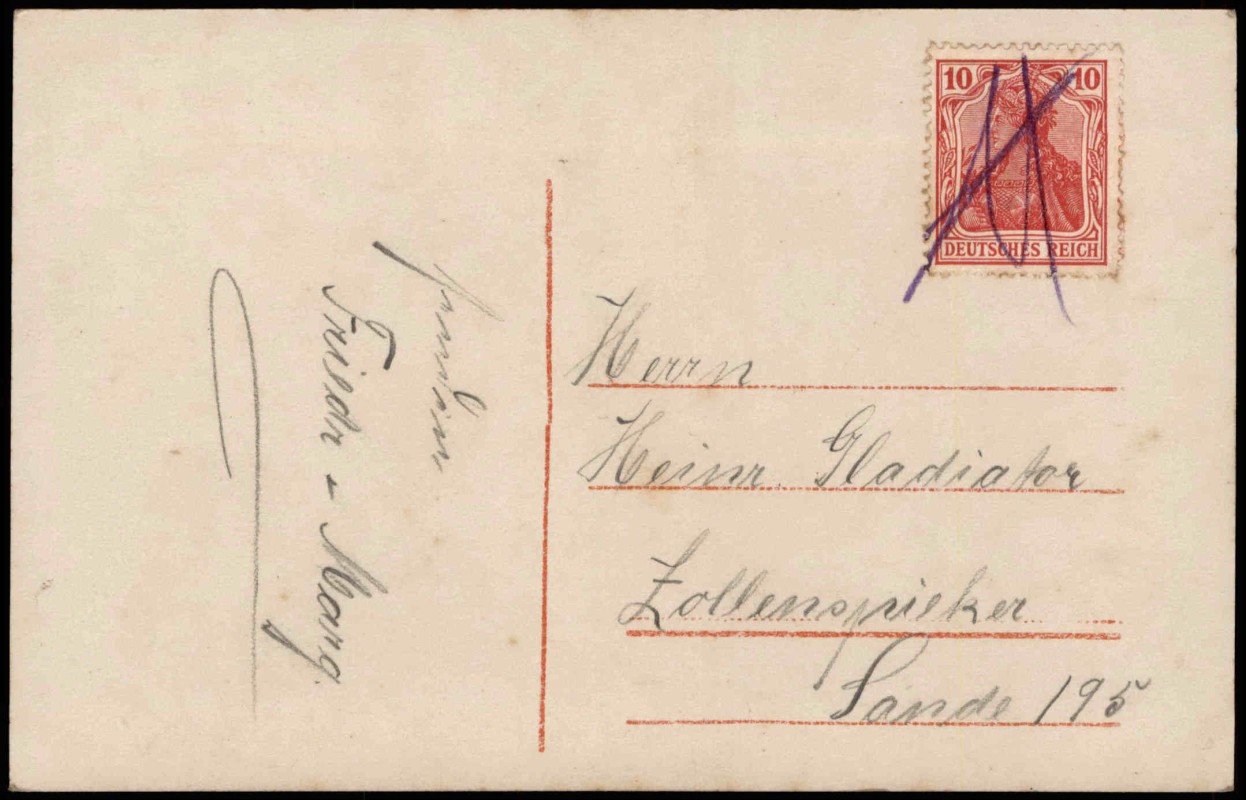 10 10
DEUTSCHES REICH
Herrn
Heinr. Gladiator
Zollenspieker
Sande 195
Friedr - Marg.